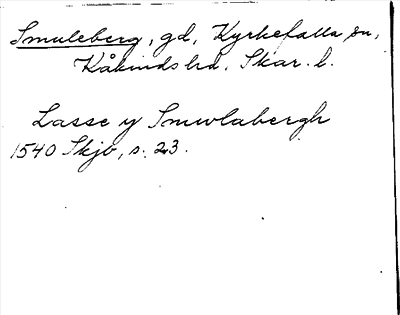 Smuleberg, gd, Kyrkefalla sn,
Kåkinds hd. Skar. l.
Lasse y Smwlabergh
1540 Skjb, s. 23.